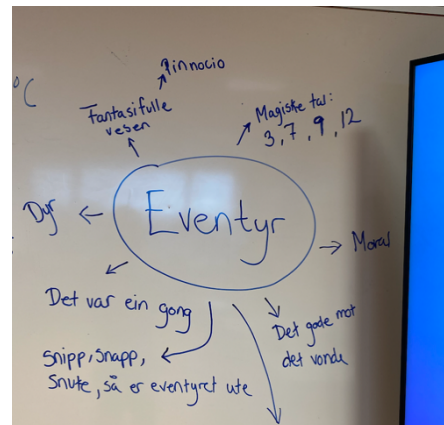 °C
Pinnocio
Fantasifulle
vesen
Magiske tal:
3, 7, 9, 12
Dyr
Eventyr
Moral
Det var ein gong
Det gode mot
det vonde
Snipp, Snapp,
Snute, så er eventyret ute